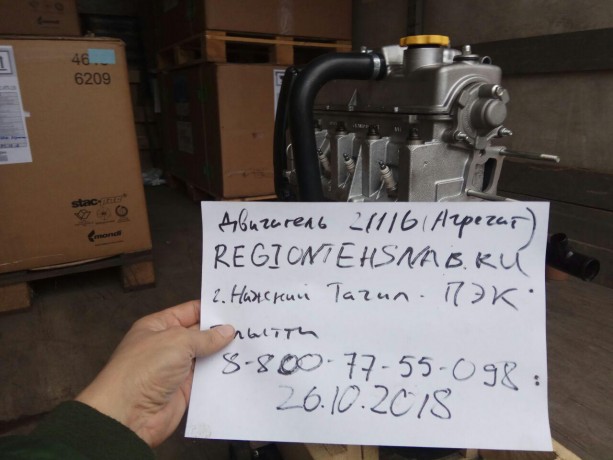 46
6209
stac-pac
mondi
Двигатель 21116 (Агрегат)
REGIONTEHSNAB.RU
г. Нижний Тагил. ПЭК
8-800-77-55-098
26.10.2018